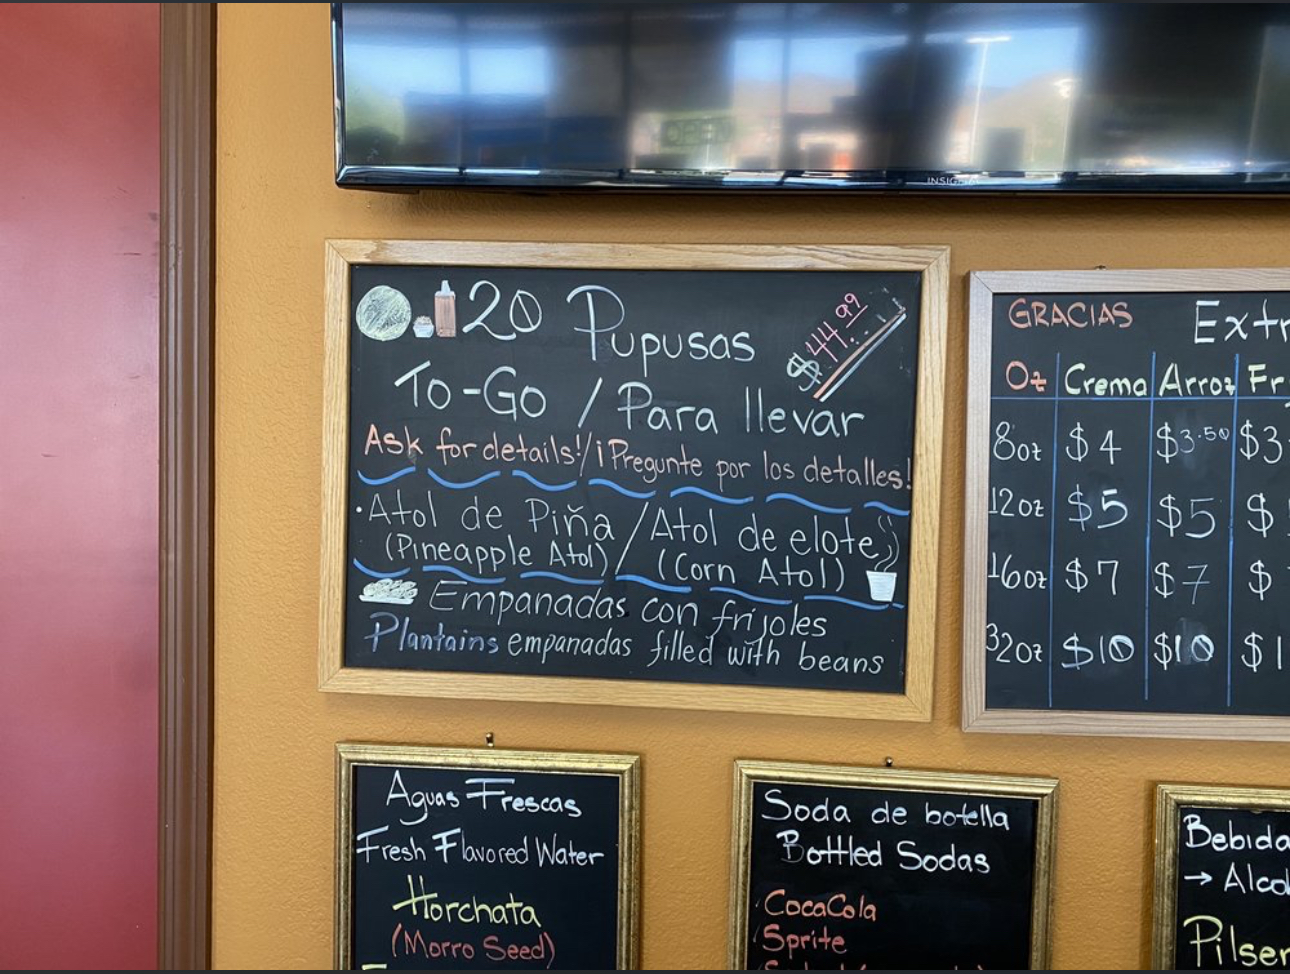 20 Pupusas
$44.99
To-Go / Para llevar
Ask for details!/¡Pregunte por los detalles!
·Atol de Piña / Atol de elote
(Pineapple Atol) / (Corn Atol)
Empanadas con frijoles
Plantains empanadas filled with beans
GRACIAS
Extr
Oz Crema Arroz Fr
8oz $4 $3.50 $3
12oz $5 $5 $
16oz $7 $7 $
32oz $10 $10 $1
Aguas Frescas
Fresh Flavored Water
Horchata
(Morro Seed)
Soda de botella
Bottled Sodas
CocaCola
Sprite
Bebida
→ Alco
Pilsen